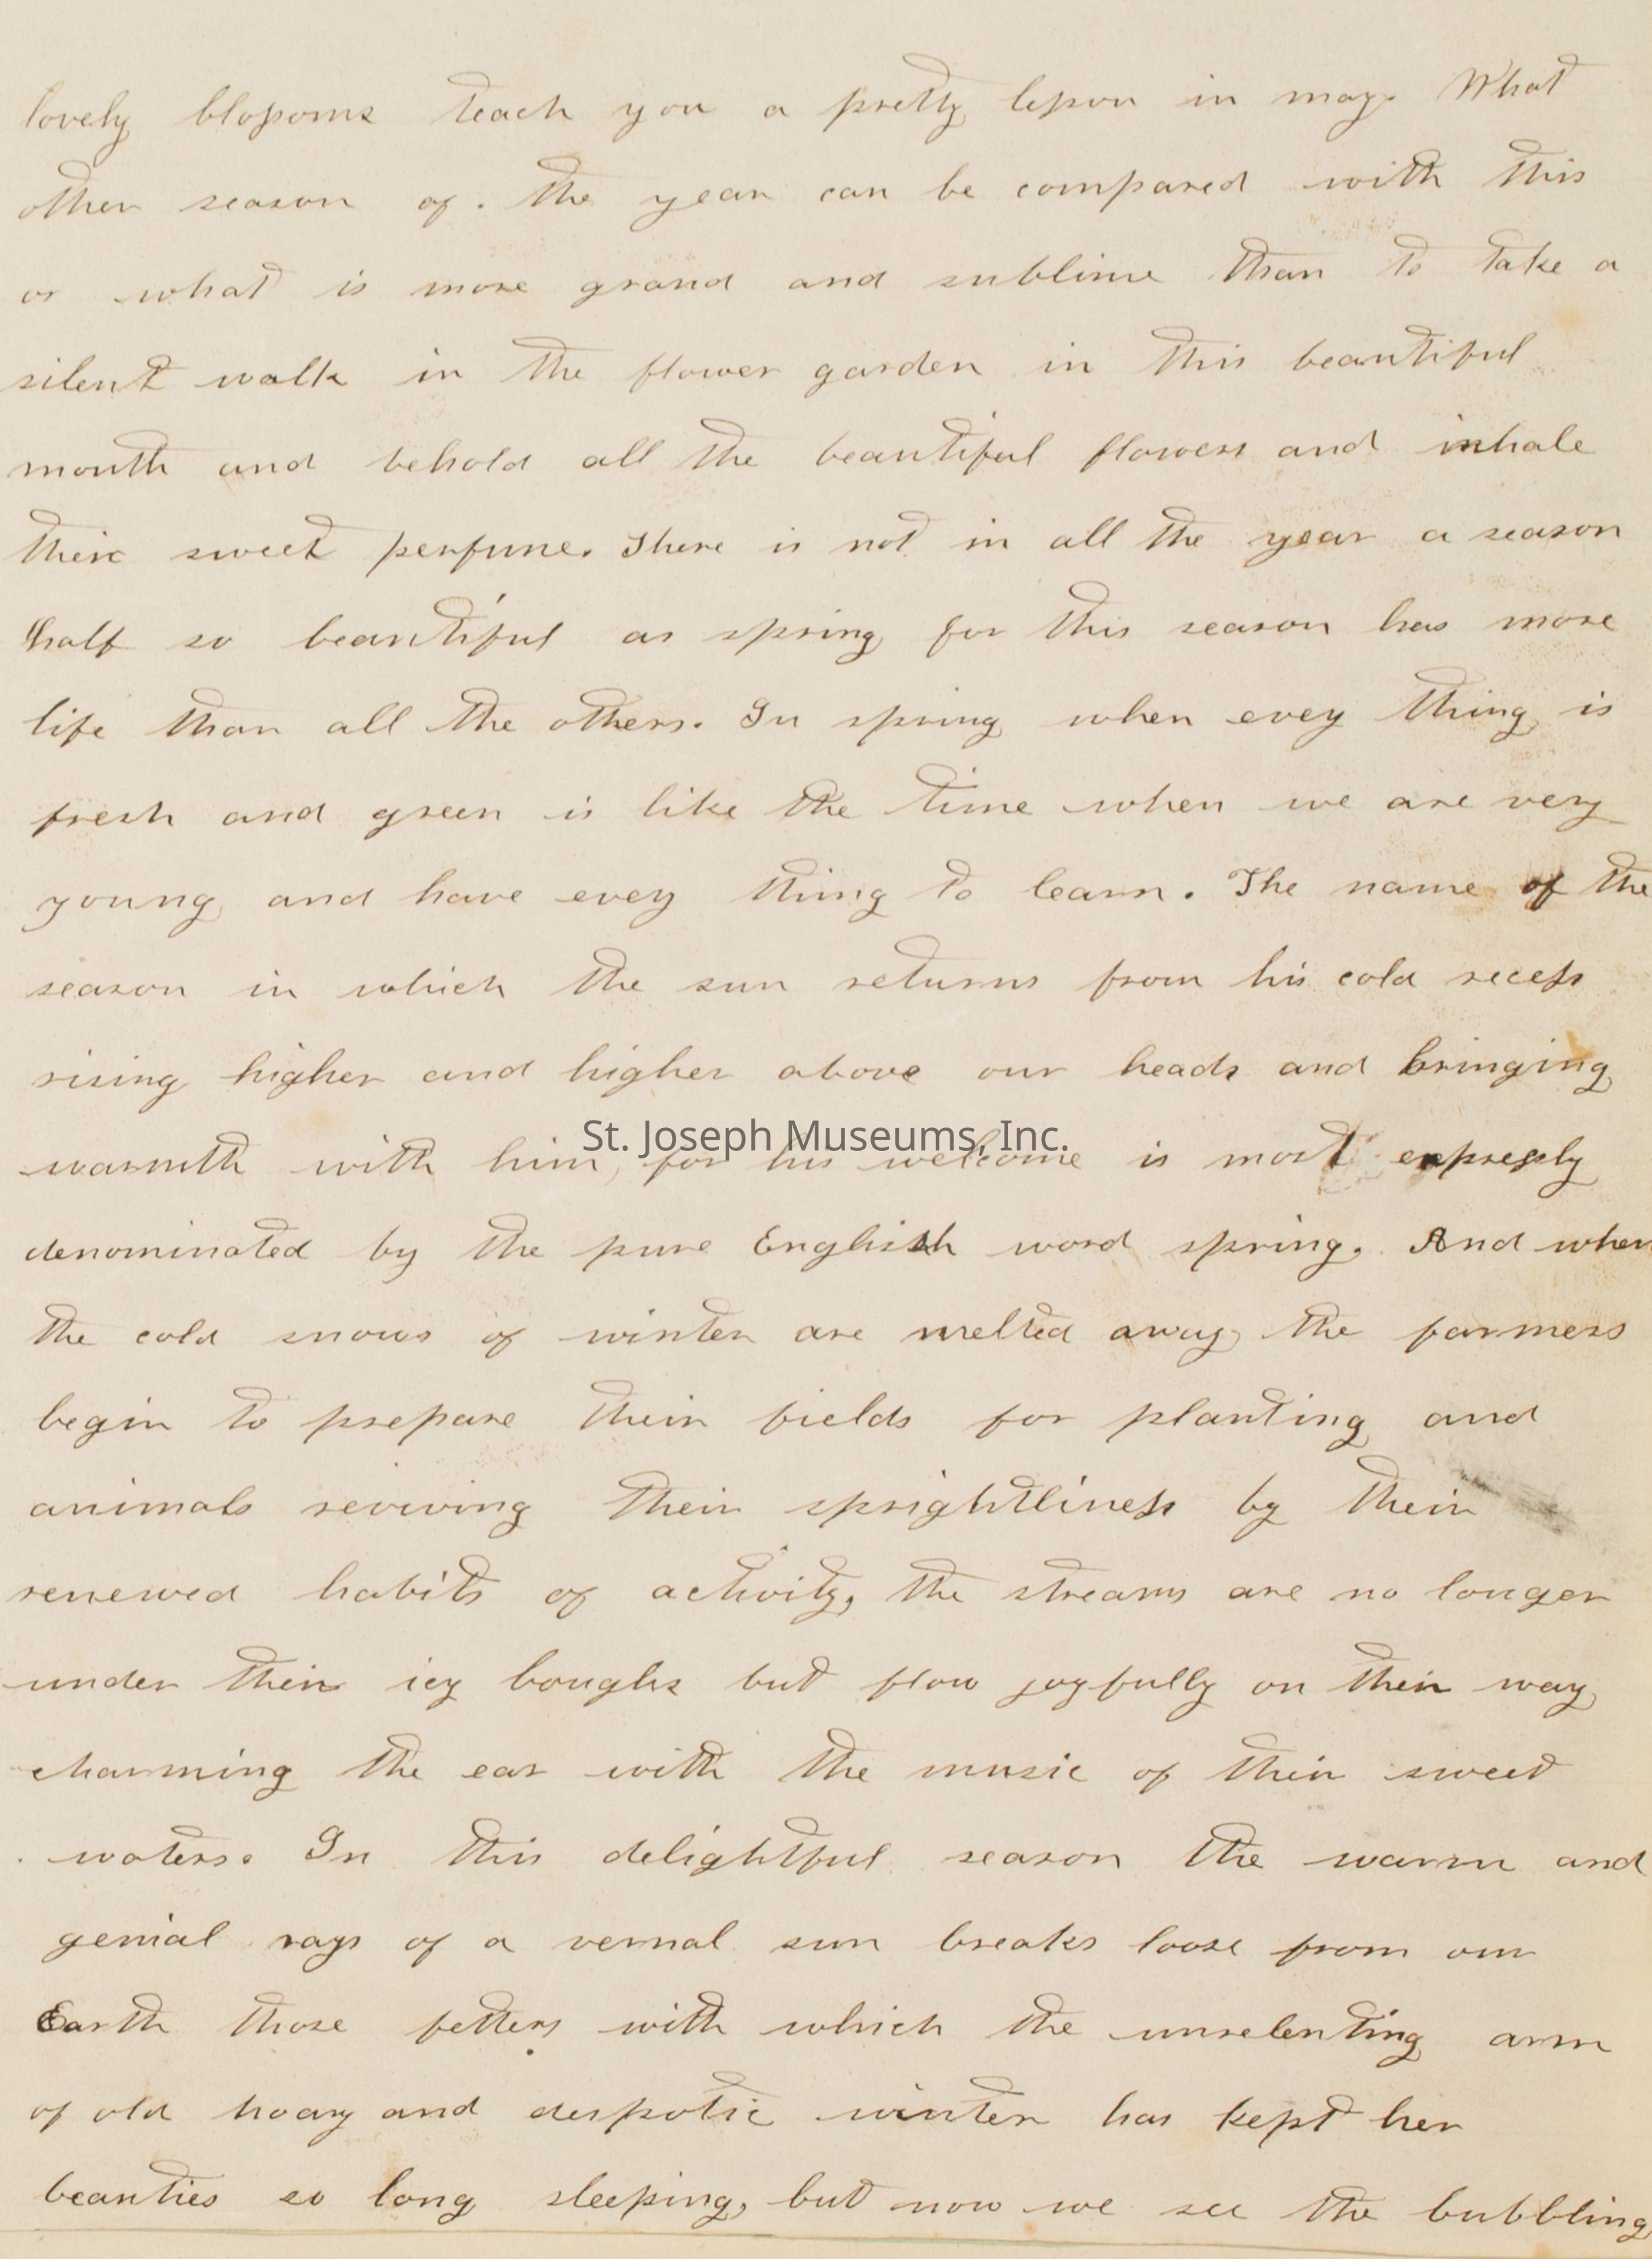 lovely blossoms teach you a pretty lesson in may. What
other season of. the year can be compared with this
or what is more grand and sublime than to take a
silent walk in the flower garden in this beautiful
month and behold all the beautiful flowers and inhale
their sweet perfume. There is not in all the year a season
half so beautiful as spring for this season has more
life than all the others. In spring when evey thing is
fresh and green is like the time when we are very
young and have evey thing to learn. The name of the
season in which the sun returns from his cold recess
rising higher and higher above our heads and bringing
St. Joseph Museums, Inc.
warmth with him, for his welcome is most expressly
denominated by the pure English word spring. And when
the cold snows of winter are melted away the farmers
begin to prepare their fields for planting and
animals reviving their sprightliness by their
renewed habits of activity, the streams are no longer
under their icy boughs but flow joyfully on their way
charming the ear with the music of their sweet
waters. In this delightful season the warm and
genial rays of a vernal sun breaks loose from our
Earth those fetters with which the unrelenting arm
of old hoary and despotic winter has kept her
beauties so long sleeping, but now we see the bubbling